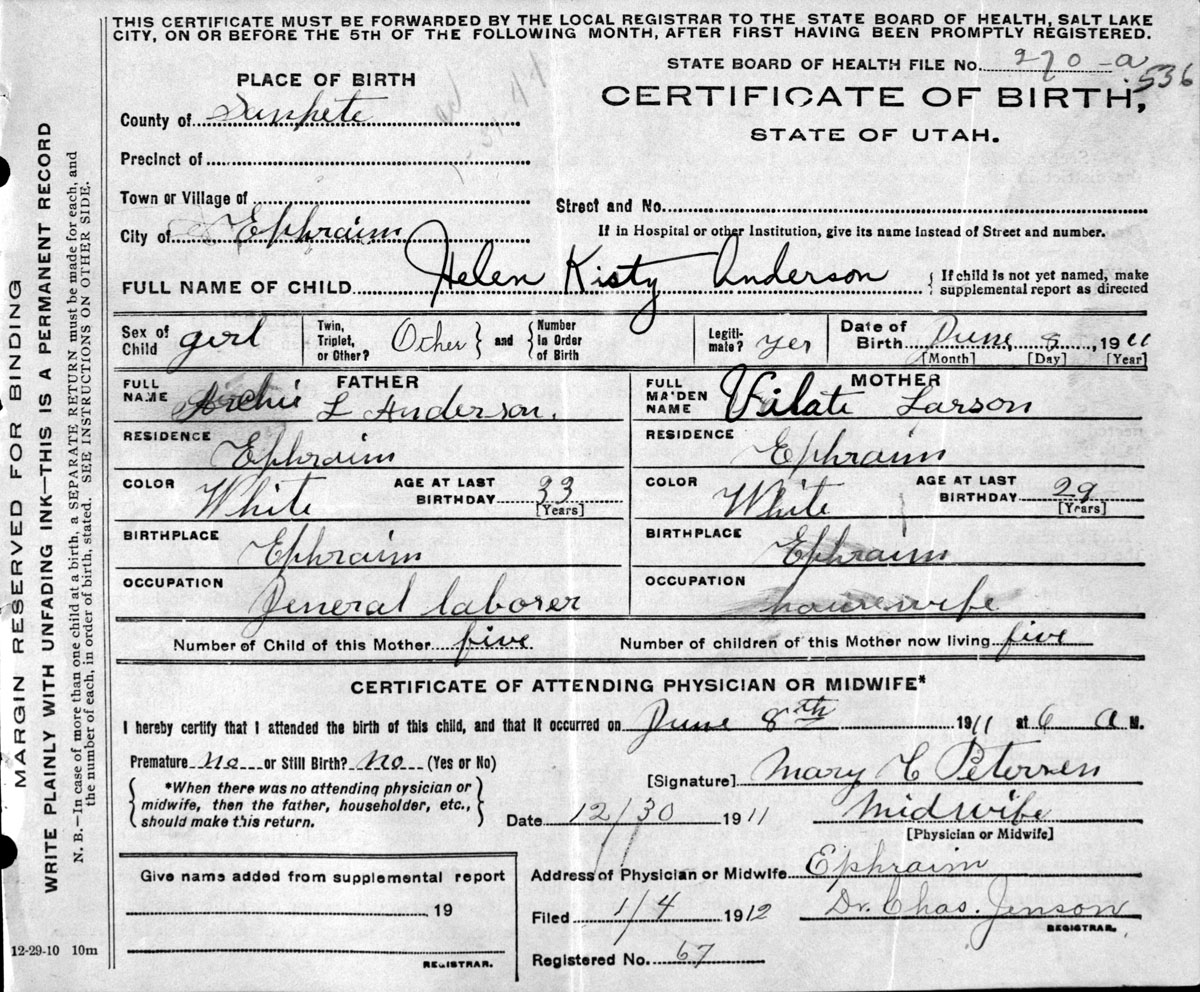 THIS CERTIFICATE MUST BE FORWARDED BY THE LOCAL REGISTRAR TO THE STATE BOARD OF HEALTH, SALT LAKE
CITY, ON OR BEFORE THE 5TH OF THE FOLLOWING MONTH, AFTER FIRST HAVING BEEN PROMPTLY REGISTERED.
STATE BOARD OF HEALTH FILE No. 270-a
536
PLACE OF BIRTH
CERTIFICATE OF BIRTH,
STATE OF UTAH.
County of Sanpete
Precinct of
Town or Village of
Street and No.
City of Ephraim
If in Hospital or other Institution, give its name instead of Street and number.
FULL NAME OF CHILD Helen Kisty Anderson { If child is not yet named, make
supplemental report as directed
Sex of Child girl
Twin, Triplet, or Other? Other } and { Number in Order of Birth
Legitimate? yes
Date of Birth June 8 1911
[Month] [Day] [Year]
FATHER
FULL NAME Archie L Anderson.
RESIDENCE Ephraim
COLOR White AGE AT LAST BIRTHDAY 33
[Years]
BIRTHPLACE Ephraim
OCCUPATION General laborer
MOTHER
FULL MAIDEN NAME Vilate Larson
RESIDENCE Ephraim
COLOR White AGE AT LAST BIRTHDAY 29
[Years]
BIRTHPLACE Ephraim
OCCUPATION housewife
Number of Child of this Mother five. Number of children of this Mother now living five
CERTIFICATE OF ATTENDING PHYSICIAN OR MIDWIFE*
I hereby certify that I attended the birth of this child, and that it occurred on June 8 1911 at 6 A M.
Premature no or Still Birth? no (Yes or No)
[Signature] Mary C Petersen
{ *When there was no attending physician or
midwife, then the father, householder, etc.,
should make this return. }
Date 12/30 1911 Midwife
[Physician or Midwife]
Give name added from supplemental report
19
REGISTRAR.
Address of Physician or Midwife Ephraim
Filed 1/4 1912 Dr. Chas. Jenson
REGISTRAR.
Registered No. 67
12-29-10 10m
MARGIN RESERVED FOR BINDING
WRITE PLAINLY WITH UNFADING INK—THIS IS A PERMANENT RECORD
N. B.—In case of more than one child at a birth, a SEPARATE RETURN must be made for each, and
the number of each, in order of birth, stated. SEE INSTRUCTIONS ON OTHER SIDE.